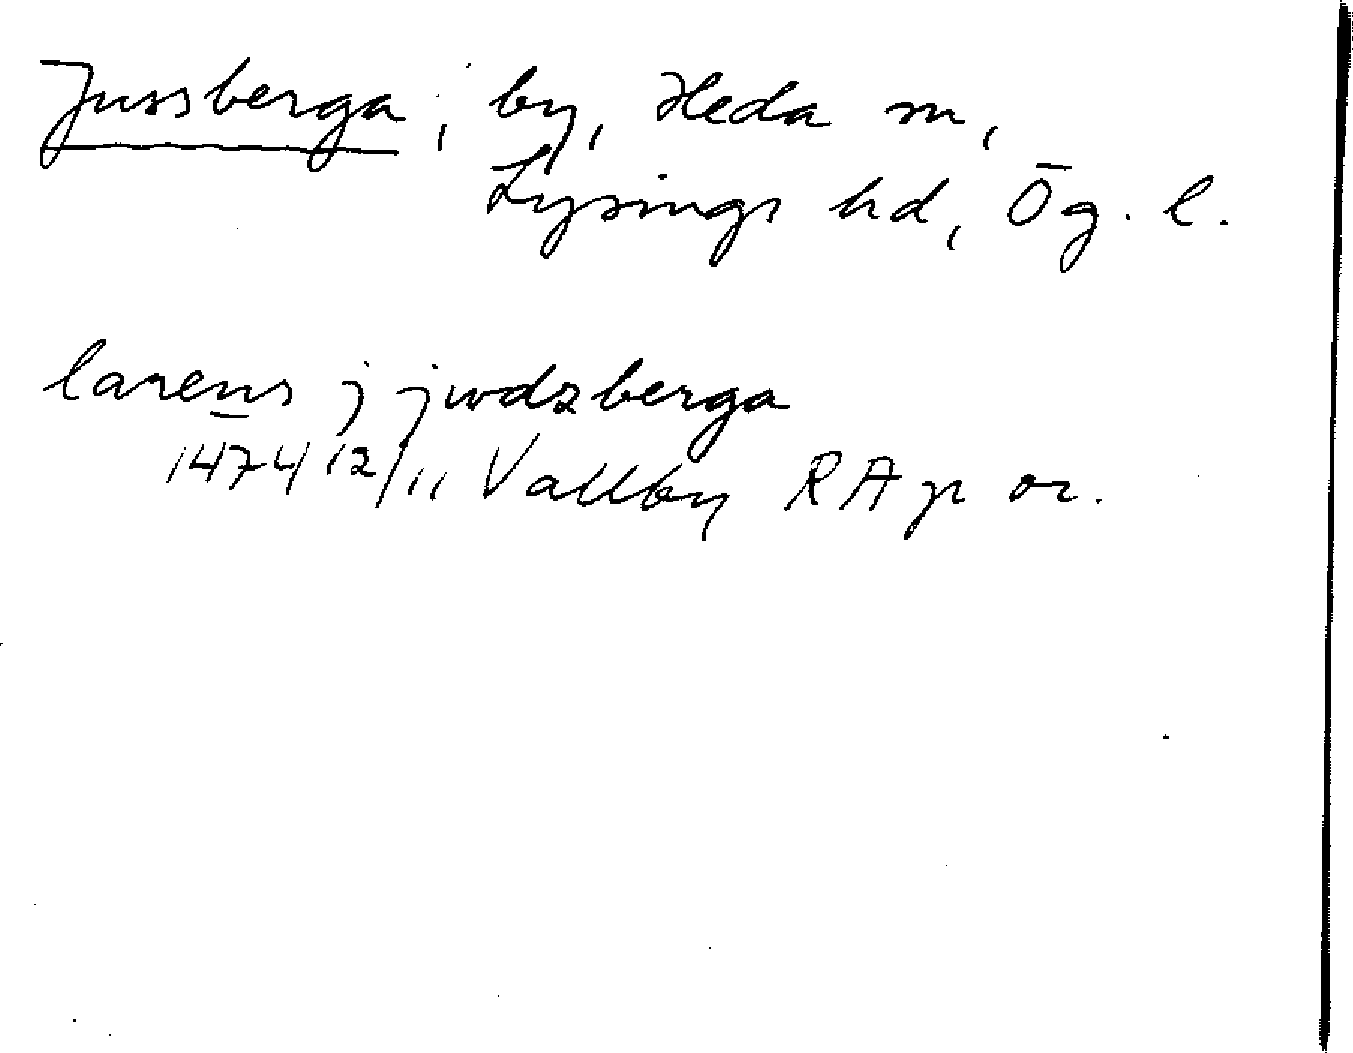 Jussberga, by, Heda sn,
Lysings hd, Ög. l.
larens j jwdzberga
1474 12/11 Vallby RA p or.